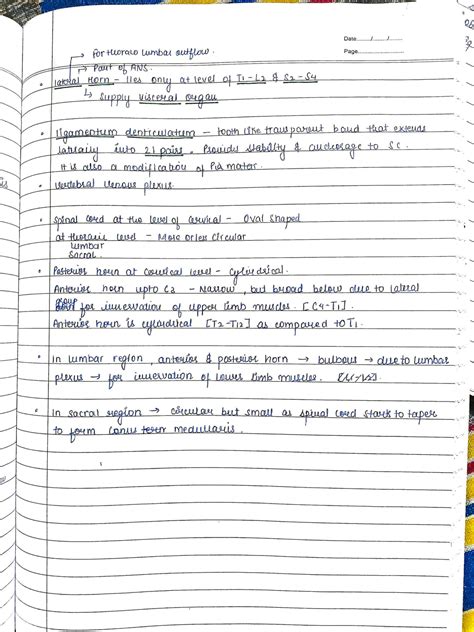 Date ___/___/___
Page
→ For thoraco lumbar outflow.
→ Part of ANS.
• lateral Horn - lies only at level of T1-L2 & S2-S4
↳ supply visceral organ
• ligamentum denticulatum - tooth like transparent band that extends
laterally into 21 pairs. Provide stability & anchorage to SC.
It is also a modification of Pia mater.
• vertebral venous plexus.
• Spinal cord at the level of cervical - Oval shaped
at thoracic level - More or less circular
lumbar
sacral
• Posterior horn at cervical level - Cylindrical.
Anterior horn upto C3 - Narrow, but broad below due to lateral
group
for innervation of upper limb muscles. [C4-T1]
Anterior horn is cylindrical [T2-T12] as compared to T1
• In lumbar region, anterior & posterior horn → bulbous → due to lumbar
plexus → for innervation of lower limb muscles.
• In sacral region → circular but small as spinal cord start to taper
to form conus medullaris.